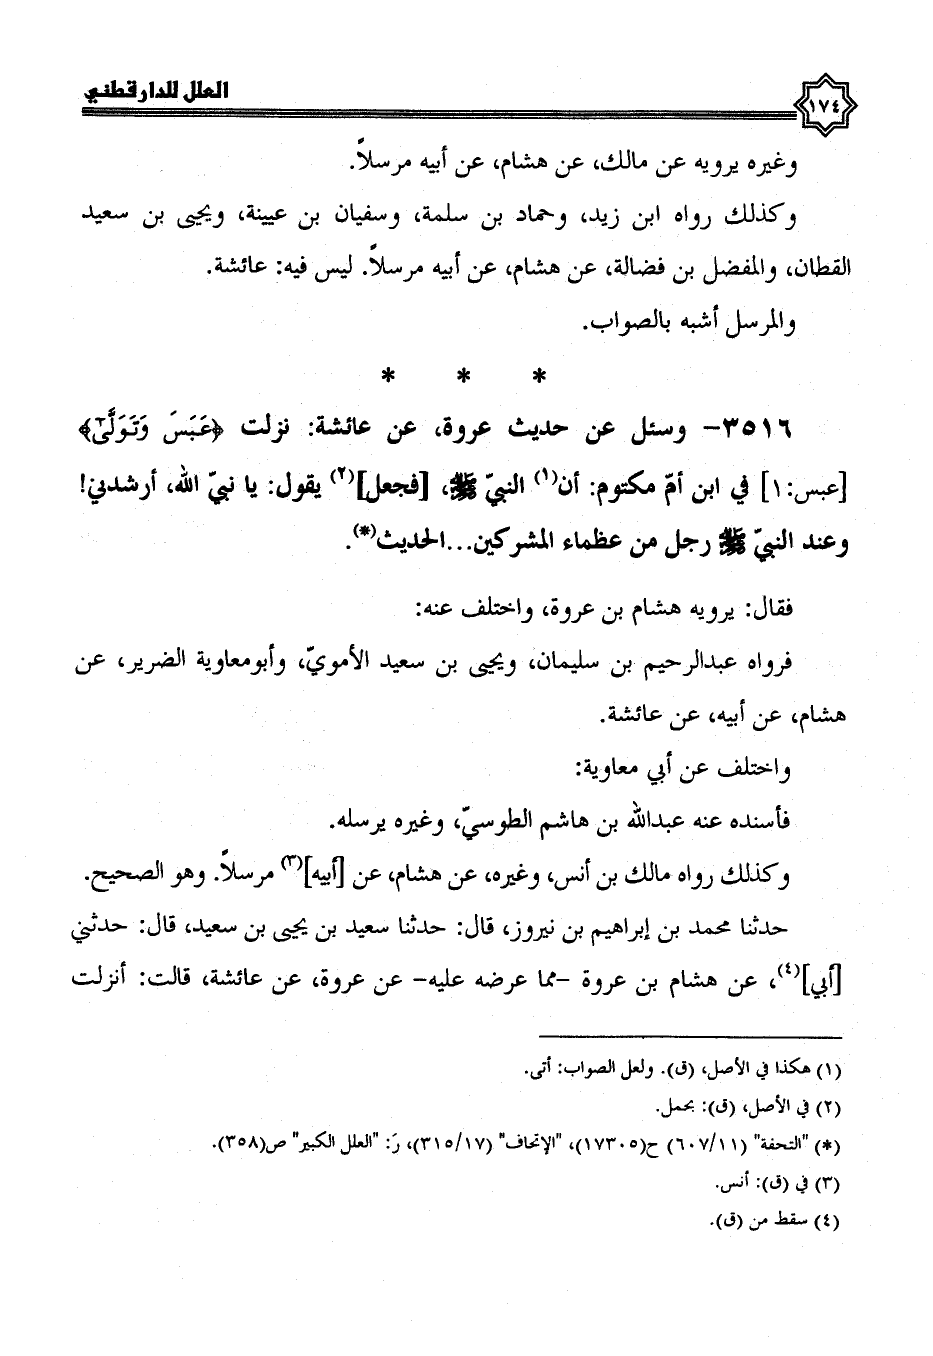 العلل للدارقطني
١٧٤
وغيره يرويه عن مالك، عن هشام، عن أبيه مرسلاً.
وكذلك رواه ابن زيد، وحماد بن سلمة، وسفيان بن عيينة، ويحيى بن سعيد
القطان، والمفضل بن فضالة، عن هشام، عن أبيه مرسلاً. ليس فيه: عائشة.
والمرسل أشبه بالصواب.
* * *
٣٥١٦- وسئل عن حديث عروة، عن عائشة: نزلت ﴿عَبَسَ وَتَوَلَّىٰ﴾
[عبس:١] في ابن أمّ مكتوم: أن(١) النبيّ ﷺ، [فجعل](٢) يقول: يا نبيّ الله، أرشدني!
وعند النبيّ ﷺ رجل من عظماء المشركين...الحديث(*).
فقال: يرويه هشام بن عروة، واختلف عنه:
فرواه عبدالرحيم بن سليمان، ويحيى بن سعيد الأمويّ، وأبومعاوية الضرير، عن
هشام، عن أبيه، عن عائشة.
واختلف عن أبي معاوية:
فأسنده عنه عبدالله بن هاشم الطوسيّ، وغيره يرسله.
وكذلك رواه مالك بن أنس، وغيره، عن هشام، عن [أبيه](٣) مرسلاً. وهو الصحيح.
حدثنا محمد بن إبراهيم بن نيروز، قال: حدثنا سعيد بن يحيى بن سعيد، قال: حدثني
[أبي](٤)، عن هشام بن عروة -مما عرضه عليه- عن عروة، عن عائشة، قالت: أنزلت
(١) هكذا في الأصل، (ق). ولعل الصواب: أتى.
(٢) في الأصل، (ق): يحمل.
(*) "التحفة" (٦٠٧/١١) ح(١٧٣٠٥)، "الإتحاف" (٣١٥/١٧)، رَ: "العلل الكبير" ص(٣٥٨).
(٣) في (ق): أنس.
(٤) سقط من (ق).